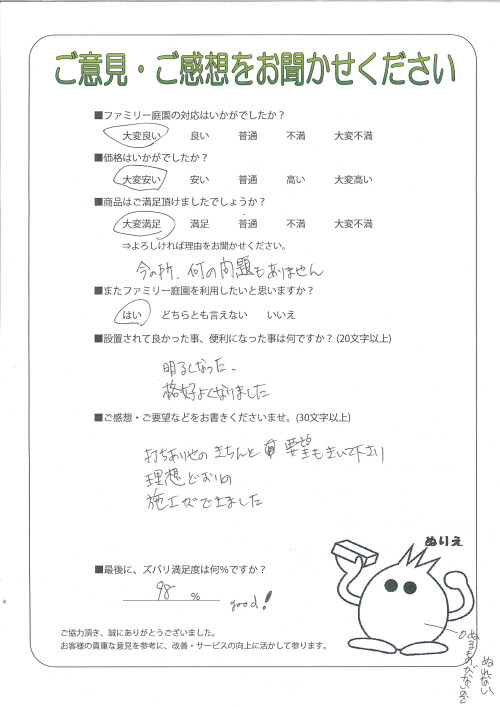 ご意見・ご感想をお聞かせください
■ファミリー庭園の対応はいかがでしたか？
大変良い 良い 普通 不満 大変不満
■価格はいかがでしたか？
大変安い 安い 普通 高い 大変高い
■商品はご満足頂けましたでしょうか？
大変満足 満足 普通 不満 大変不満
⇒よろしければ理由をお聞かせください。
今の所、何の問題もありません
■またファミリー庭園を利用したいと思いますか？
はい どちらとも言えない いいえ
■設置されて良かった事、便利になった事は何ですか？(20文字以上)
明るくなった、
格好よくなりました
■ご感想・ご要望などをお書きくださいませ。(30文字以上)
打ちあわせの きちんと 要望もきいて下さり
理想どおりの
施工ができました
ぬりえ
■最後に、ズバリ満足度は何％ですか？
98 %
good!
ご協力頂き、誠にありがとうございました。
お客様の貴重な意見を参考に、改善・サービスの向上に活かして参ります。
ぬるものがないので
ぬれない